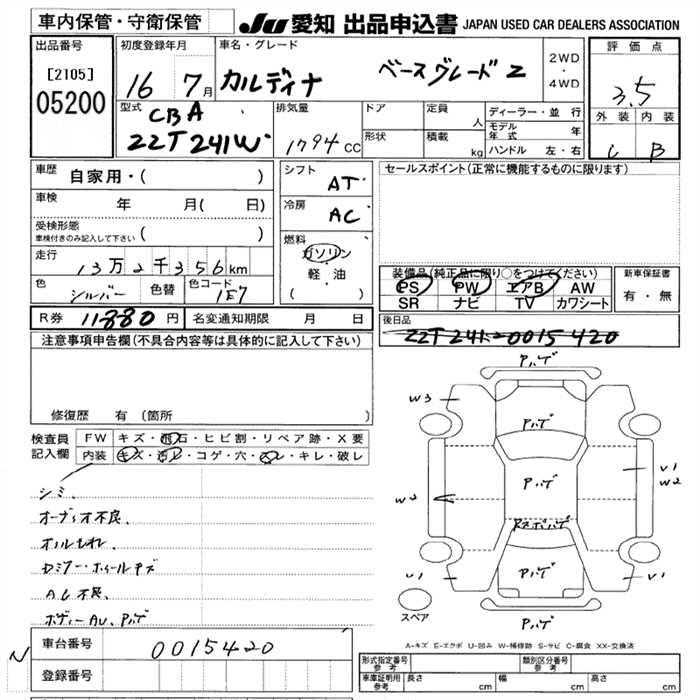 車内保管・守衛保管
JU 愛知 出品申込書 JAPAN USED CAR DEALERS ASSOCIATION
出品番号
[2105]
05200
初度登録年月
16 7月
車名・グレード
カルディナ ベースグレード Z
2WD
・
4WD
評価点
3.5
外装 内装
C B
型式
CBA
ZZT241W
排気量
1794 CC
ドア
形状
定員 人
積載 kg
ディーラー・並行
モデル年式 年
ハンドル 左・右
車歴
自家用・( )
車検 年 月( 日)
受検形態
車検付きのみ記入して下さい ( )
走行
13万2千356km
色 シルバー 色替 色コード 1E7
シフト
AT
冷房
AC
燃料
ガソリン
・
軽油
( )
セールスポイント(正常に機能するものに限ります)
装備品(純正品に限り○をつけてください)
PS PW エアB AW
SR ナビ TV カワシート
新車保証書
有・無
R券 11880円 名変通知期限 月 日
後日品
ZZT241-0015420
注意事項申告欄(不具合内容等は具体的に記入して下さい)
修復歴 有(箇所 )
検査員
記入欄
FW キズ・飛石・ヒビ割・リペア跡・X要
内装 キズ・汚レ・コゲ・穴・スレ・キレ・破レ
シミ、
オーディオ不良、
セミアー・ホイールキズ
AC不良、
ボディーAU、アハゲ
アハゲ
W3
アハゲ
アハゲ
アハゲ
アハゲ
W2
V1
W2
U1
V1
スペア
A-キズ E-エクボ U-凹み W-補修跡 S-サビ C-腐食 XX-交換済
N
車台番号 0015420
登録番号
形式指定番号
参考
類別区分番号
参考
車庫証明用
参考
長さ cm 幅 cm 高さ cm